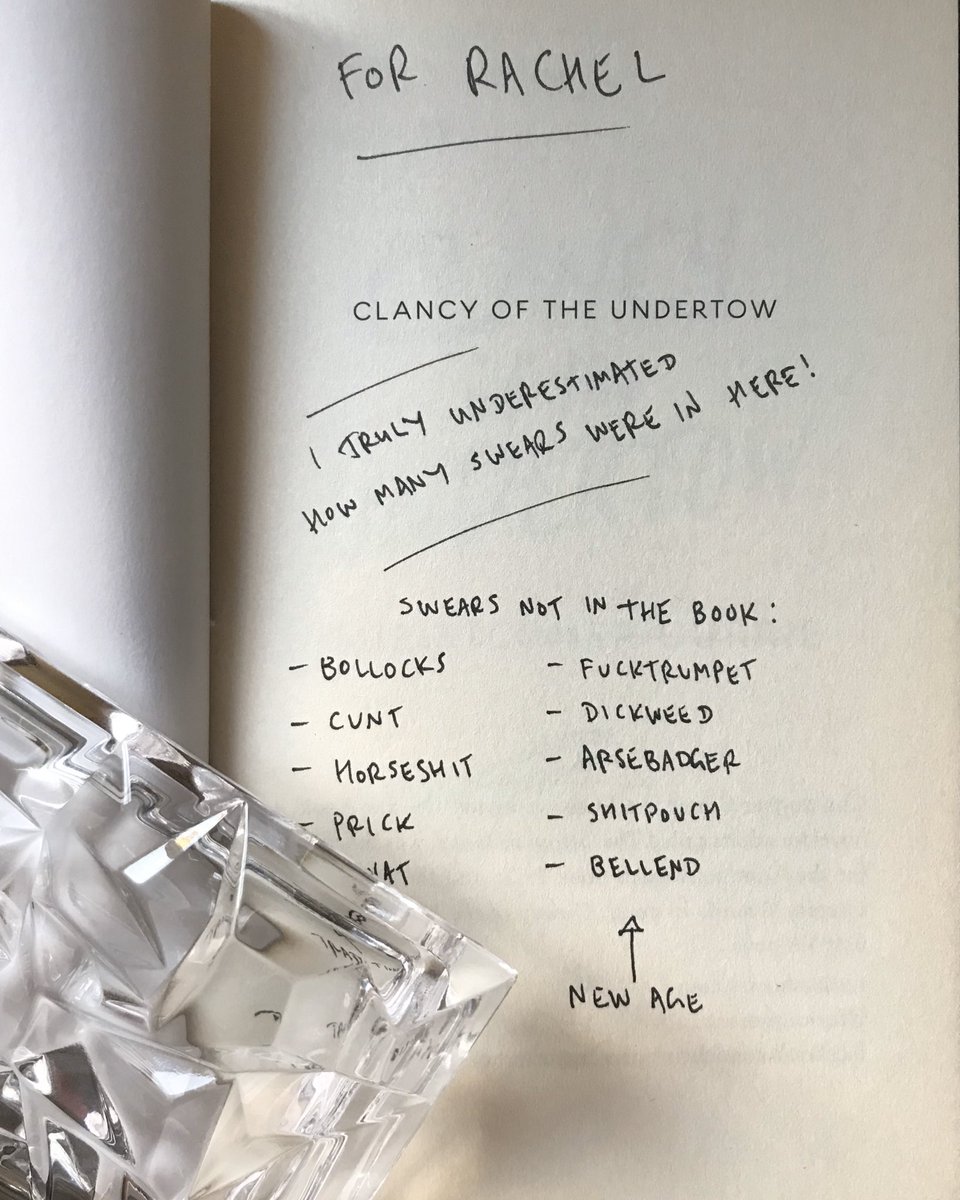 FOR RACHEL
CLANCY OF THE UNDERTOW
I TRULY UNDERESTIMATED
HOW MANY SWEARS WERE IN HERE!
SWEARS NOT IN THE BOOK:
- BOLLOCKS
- CUNT
- HORSESHIT
- PRICK
- FUCKTRUMPET
- DICKWEED
- ARSEBADGER
- SHITPOUCH
- BELLEND
NEW AGE